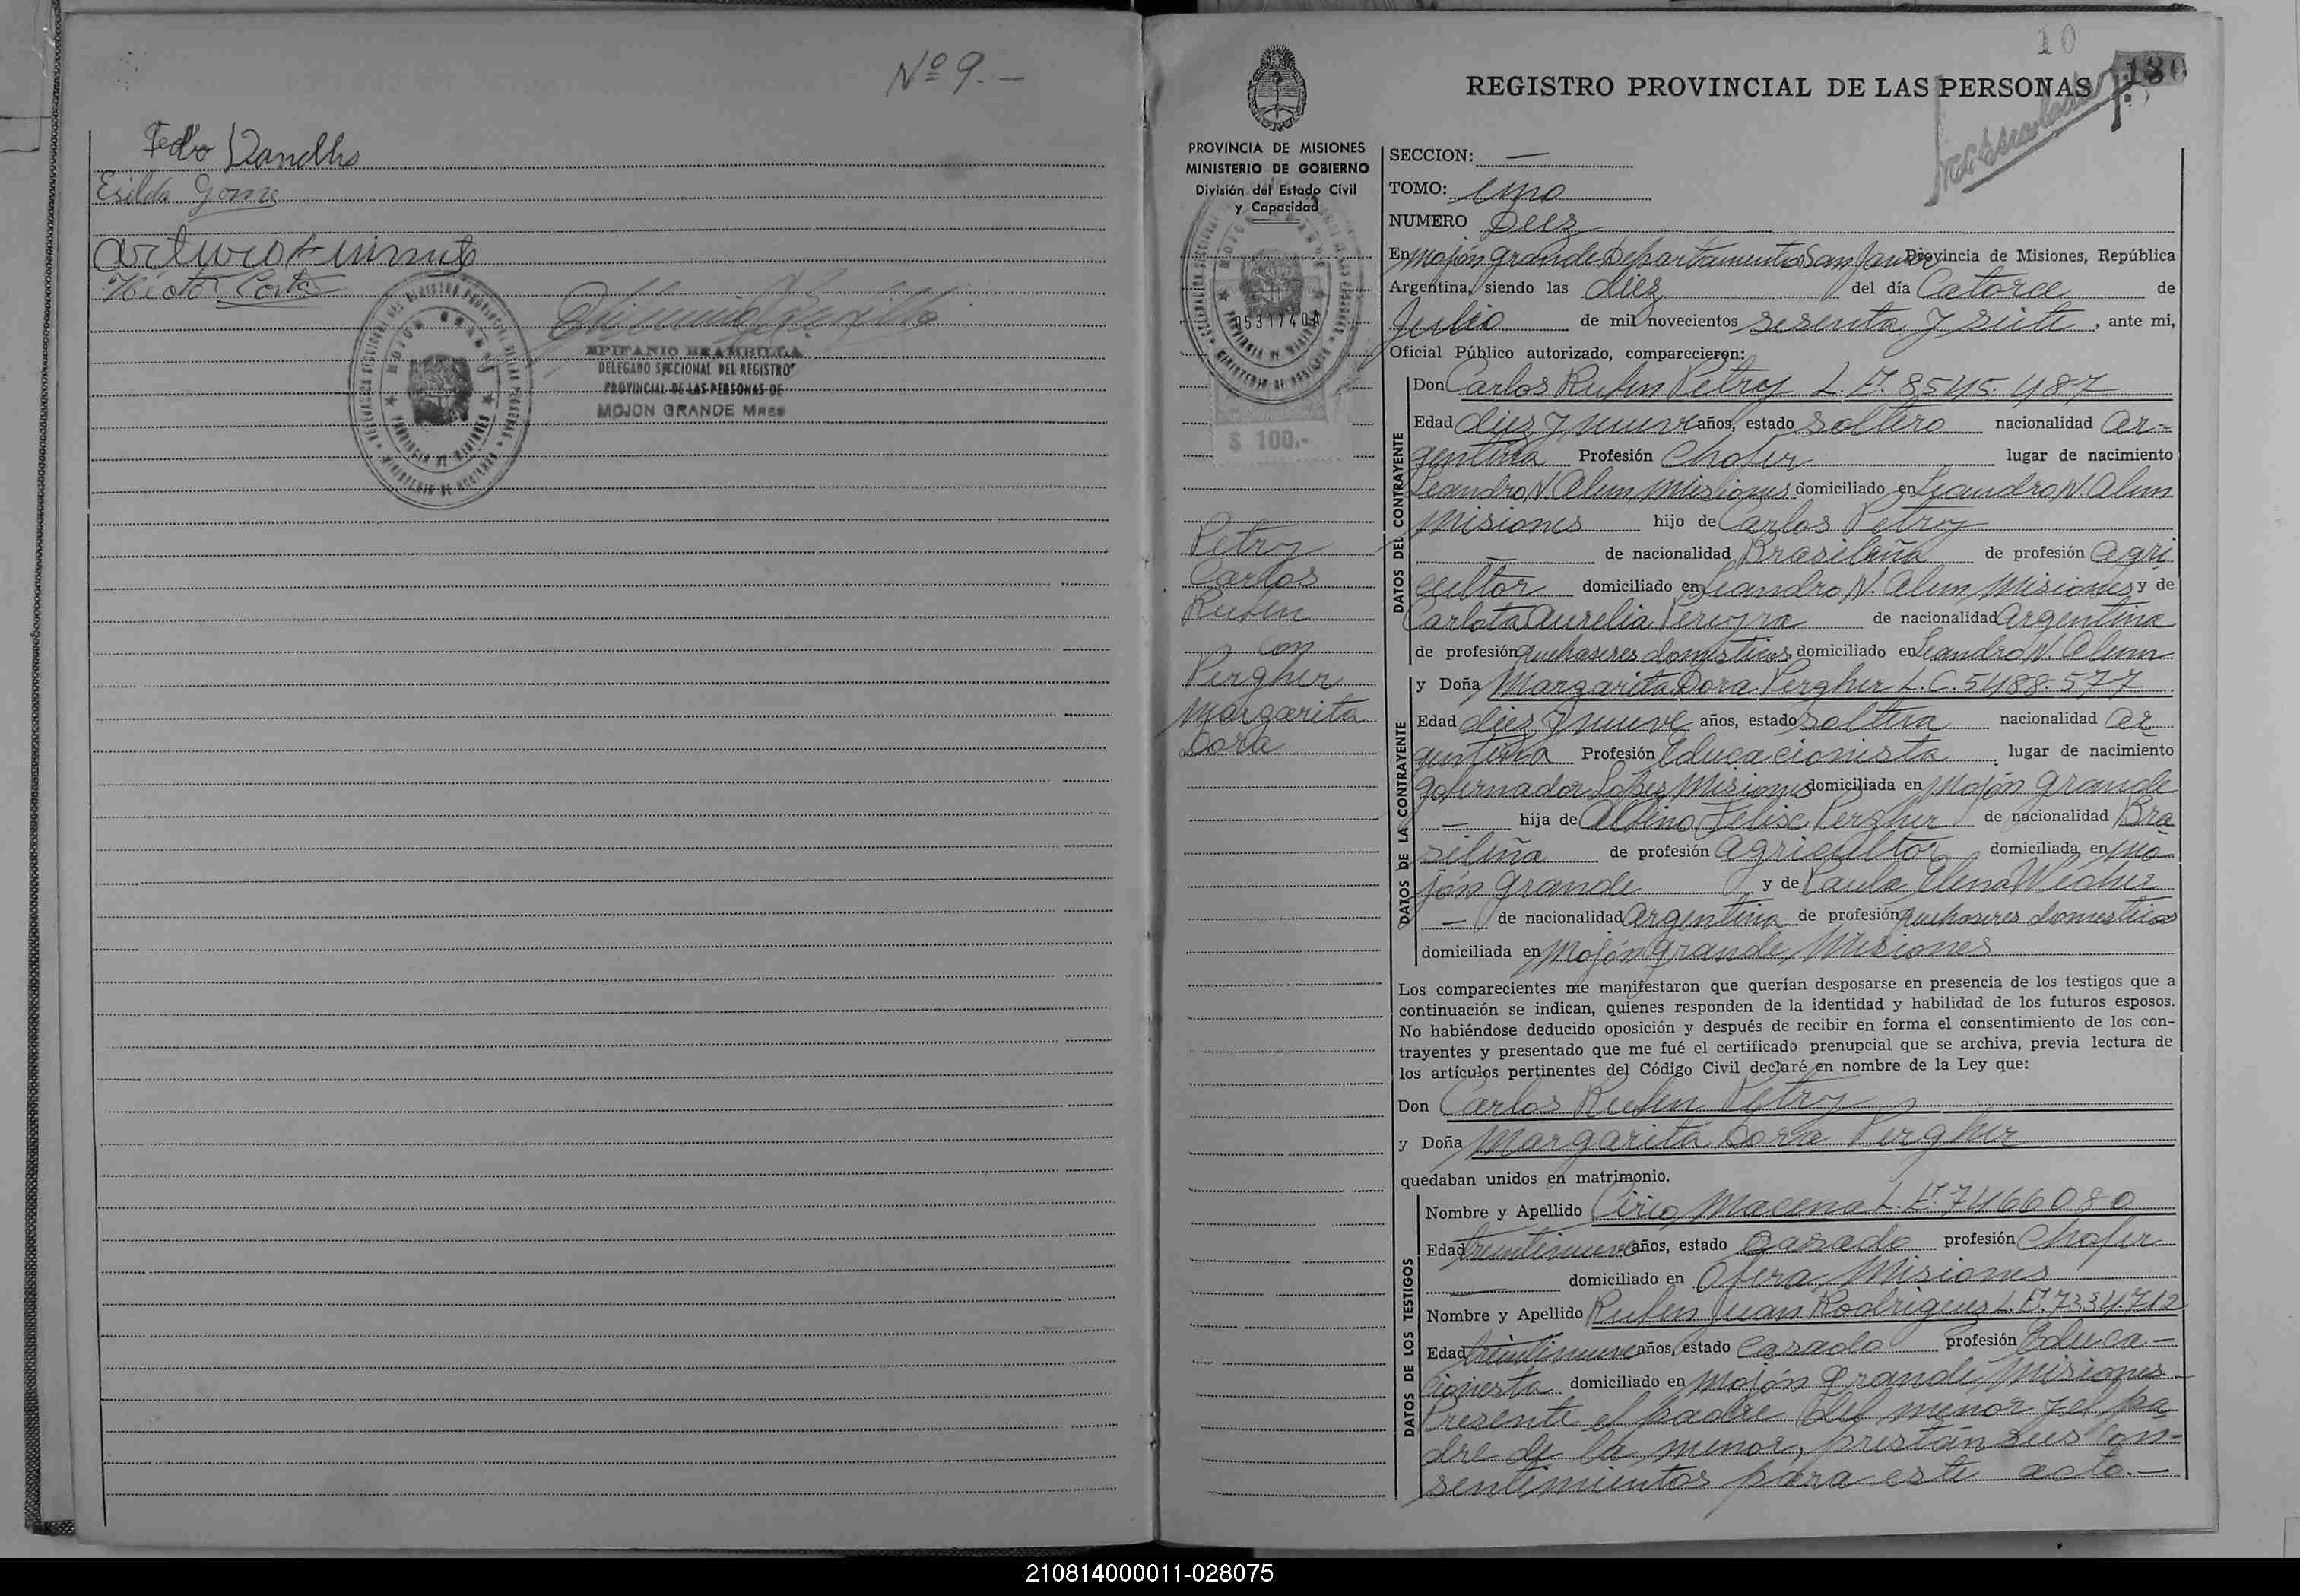 Nº 9.-
Pedro
Esilda Gome
Arturo
Hector
EPIFANIO BRAMBILLA
DELEGADO SECCIONAL DEL REGISTRO
PROVINCIAL DE LAS PERSONAS DE
MOJON GRANDE Mnes
10
130
REGISTRO PROVINCIAL DE LAS PERSONAS
PROVINCIA DE MISIONES
MINISTERIO DE GOBIERNO
División del Estado Civil
y Capacidad
0531740A
$ 100.-
Petry
Carlos
Ruben
con
Pergher
Margarita
Dora
SECCION: —
TOMO: Uno
NUMERO Diez
En Mojón Grande Departamento San Javier Provincia de Misiones, República
Argentina, siendo las diez del día Catorce de
Julio de mil novecientos sesenta y siete, ante mi,
Oficial Público autorizado, comparecieron:
DATOS DEL CONTRAYENTE
Don Carlos Ruben Petry L.E. 8545.487
Edad diez y nueve años, estado soltero nacionalidad Ar-
gentina Profesión Chofer lugar de nacimiento
Leandro N. Alem Misiones domiciliado en Leandro N. Alem
Misiones hijo de Carlos Petry
— de nacionalidad Brasileña de profesión Agri
cultor domiciliado en Leandro N. Alem, Misiones y de
Carlota Aurelia Pereyra de nacionalidad Argentina
de profesión quehaseres domesticos domiciliado en Leandro N. Alem
DATOS DE LA CONTRAYENTE
y Doña Margarita Dora Pergher L.C. 5488.577
Edad diez y nueve años, estado soltera nacionalidad Ar
gentina Profesión Educacionista lugar de nacimiento
Gobernador López Misiones domiciliada en Mojón Grande
— hija de Albino Felise Pergher de nacionalidad Bra
sileña de profesión Agricultor domiciliada en Mo-
jón Grande y de Paula Elena
— de nacionalidad Argentina de profesión quehaseres domesticos
domiciliada en Mojón Grande, Misiones
Los comparecientes me manifestaron que querían desposarse en presencia de los testigos que a
continuación se indican, quienes responden de la identidad y habilidad de los futuros esposos.
No habiéndose deducido oposición y después de recibir en forma el consentimiento de los con-
trayentes y presentado que me fué el certificado prenupcial que se archiva, previa lectura de
los artículos pertinentes del Código Civil declaré en nombre de la Ley que:
Don Carlos Ruben Petry
y Doña Margarita Dora Pergher
quedaban unidos en matrimonio.
DATOS DE LOS TESTIGOS
Nombre y Apellido Cirio Macena L.E. 7466080
Edad treintinueve años, estado Casado profesión Chofer
— domiciliado en Obera, Misiones
Nombre y Apellido Ruben Juan Rodriguez L.E. 7334.712
Edad treintinueve años, estado Casado profesión Educa-
cionista domiciliado en Mojón Grande, Misiones
Presente el padre del menor y el pa
dre de la menor, prestan sus con-
sentimientos para este acto.-
210814000011-028075